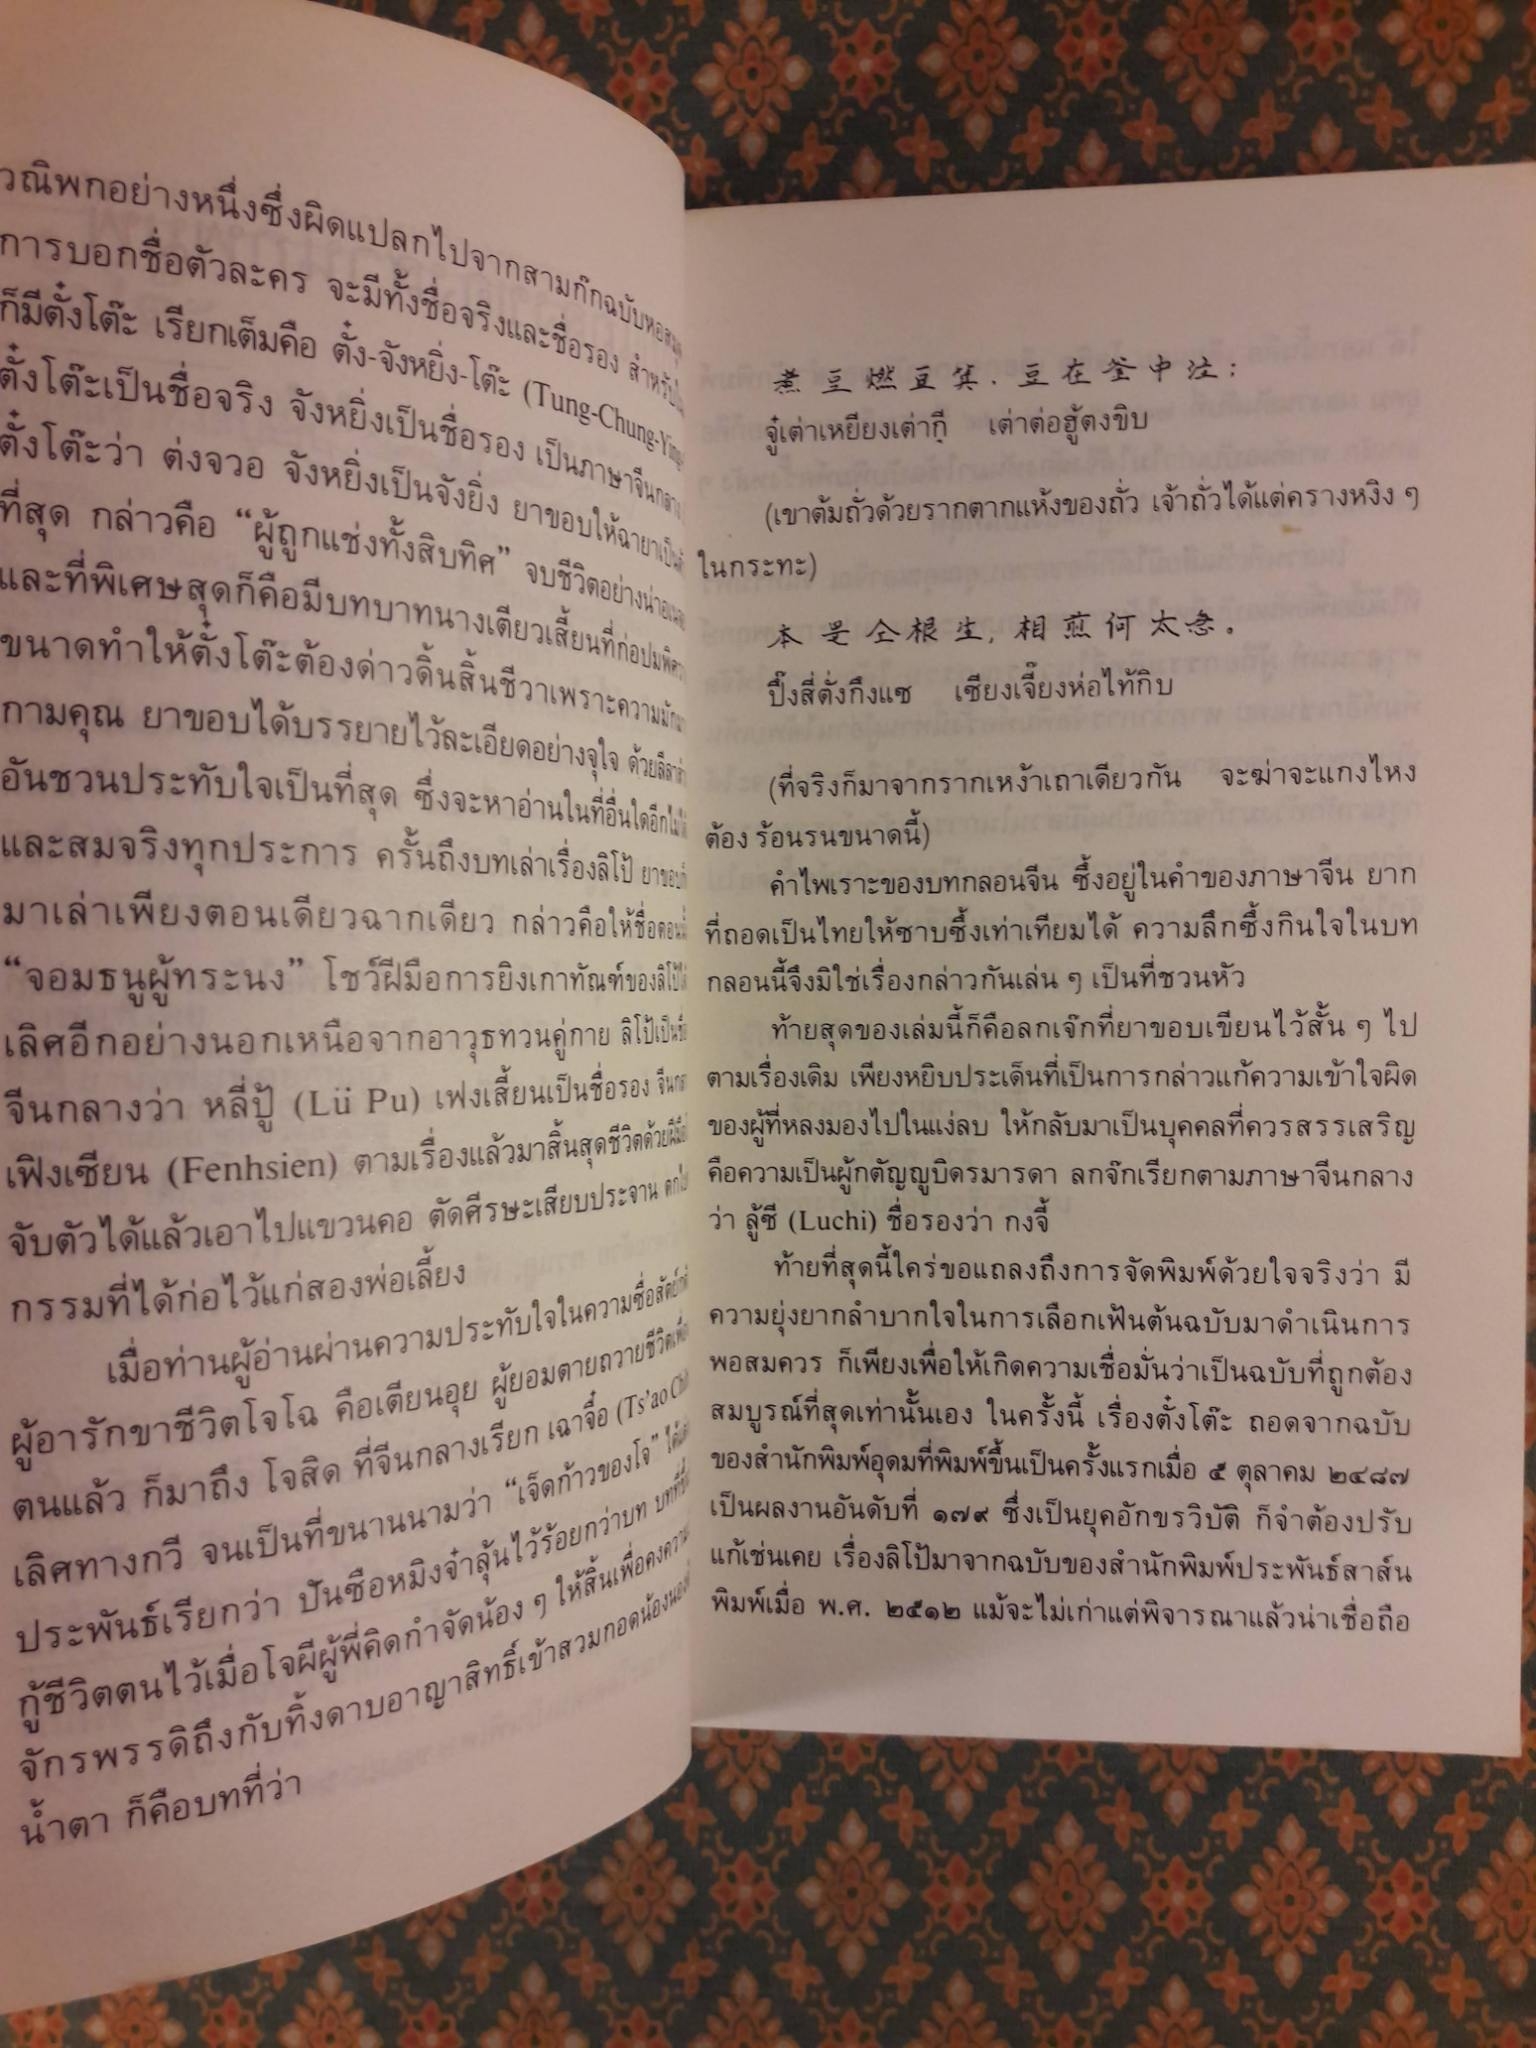 วณิพกอย่างหนึ่งซึ่งผิดแปลกไปจากสามก๊กฉบับหอสมุด
การบอกชื่อตัวละคร จะมีทั้งชื่อจริงและชื่อรอง สำหรับ
ก็มีตั๋งโต๊ะ เรียกเต็มคือ ตั๋ง-จังหยิ่ง-โต๊ะ (Tung-Chung-Ying-
ตั๋งโต๊ะเป็นชื่อจริง จังหยิ่งเป็นชื่อรอง เป็นภาษาจีนกลาง
ตั๋งโต๊ะว่า ต่งจวอ จังหยิ่งเป็นจังยิ่ง ยาขอบให้ฉายาเป็น
ที่สุด กล่าวคือ “ผู้ถูกแช่งทั้งสิบทิศ” จบชีวิตอย่างน่า
และที่พิเศษสุดก็คือมีบทบาทนางเตียวเสี้ยนที่ก่อปม
ขนาดทำให้ตั๋งโต๊ะต้องด่าวดิ้นสิ้นชีวาเพราะความมัก
กามคุณ ยาขอบได้บรรยายไว้ละเอียดอย่างจุใจ ด้วยลีลา
อันชวนประทับใจเป็นที่สุด ซึ่งจะหาอ่านในที่อื่นใดอีกไม่ได้
และสมจริงทุกประการ ครั้นถึงบทเล่าเรื่องลิโป้ ยาขอบก็
มาเล่าเพียงตอนเดียวฉากเดียว กล่าวคือให้ชื่อตอนนี้
“จอมธนูผู้ทระนง” โชว์ฝีมือการยิงเกาทัณฑ์ของลิโป้
เลิศอีกอย่างนอกเหนือจากอาวุธทวนคู่กาย ลิโป้เป็นชื่อ
จีนกลางว่า หลี่ปู้ (Lü Pu) เฟงเสี้ยนเป็นชื่อรอง จีนกลาง
เฟิงเซียน (Fenhsien) ตามเรื่องแล้วมาสิ้นสุดชีวิตด้วยฝีมือ
จับตัวได้แล้วเอาไปแขวนคอ ตัดศีรษะเสียบประจาน ตกไป
กรรมที่ได้ก่อไว้แก่สองพ่อเลี้ยง
เมื่อท่านผู้อ่านผ่านความประทับใจในความซื่อสัตย์
ผู้อารักขาชีวิตโจโฉ คือเตียนอุย ผู้ยอมตายถวายชีวิตเพื่อ
ตนแล้ว ก็มาถึง โจสิด ที่จีนกลางเรียก เฉาจื๋อ (Ts'ao Chih
เลิศทางกวี จนเป็นที่ขนานนามว่า “เจ็ดก้าวของโจ” ได้
ประพันธ์เรียกว่า ปันซือหมิงจ๋าลุ้นไว้ร้อยกว่าบท บทที่
กู้ชีวิตตนไว้เมื่อโจผีผู้พี่คิดกำจัดน้อง ๆ ให้สิ้นเพื่อคงความ
จักรพรรดิถึงกับทิ้งดาบอาญาสิทธิ์เข้าสวมกอดน้องนอง
น้ำตา ก็คือบทที่ว่า
煮豆燃豆箕．豆在釜中泣：
จู๋เต่าเหยียงเต่ากี ี เต่าต่อฮู้ตงขิบ
(เขาต้มถั่วด้วยรากตากแห้งของถั่ว เจ้าถั่วได้แต่ครางหงิง ๆ
ในกระทะ)
本是仝根生，相煎何太急。
ปึ๊งสี่ตั่งกึงแซ เซียงเจี๊ยงห่อไท้กิบ
(ที่จริงก็มาจากรากเหง้าเถาเดียวกัน จะฆ่าจะแกงไหง
ต้อง ร้อนรนขนาดนี้)
คำไพเราะของบทกลอนจีน ซึ้งอยู่ในคำของภาษาจีน ยาก
ที่ถอดเป็นไทยให้ซาบซึ้งเท่าเทียมได้ ความลึกซึ้งกินใจในบท
กลอนนี้จึงมิใช่เรื่องกล่าวกันเล่น ๆ เป็นที่ชวนหัว
ท้ายสุดของเล่มนี้ก็คือลกเจ๊กที่ยาขอบเขียนไว้สั้น ๆ ไป
ตามเรื่องเดิม เพียงหยิบประเด็นที่เป็นการกล่าวแก้ความเข้าใจผิด
ของผู้ที่หลงมองไปในแง่ลบ ให้กลับมาเป็นบุคคลที่ควรสรรเสริญ
คือความเป็นผู้กตัญญูบิดรมารดา ลกจ๊กเรียกตามภาษาจีนกลาง
ว่า ลู้ซี (Luchi) ชื่อรองว่า กงจี้
ท้ายที่สุดนี้ใคร่ขอแถลงถึงการจัดพิมพ์ด้วยใจจริงว่า มี
ความยุ่งยากลำบากใจในการเลือกเฟ้นต้นฉบับมาดำเนินการ
พอสมควร ก็เพียงเพื่อให้เกิดความเชื่อมั่นว่าเป็นฉบับที่ถูกต้อง
สมบูรณ์ที่สุดเท่านั้นเอง ในครั้งนี้ เรื่องตั๋งโต๊ะ ถอดจากฉบับ
ของสำนักพิมพ์อุดมที่พิมพ์ขึ้นเป็นครั้งแรกเมื่อ ๕ ตุลาคม ๒๔๘๗
เป็นผลงานอันดับที่ ๑๗๙ ซึ่งเป็นยุคอักขรวิบัติ ก็จำต้องปรับ
แก้เช่นเคย เรื่องลิโป้มาจากฉบับของสำนักพิมพ์ประพันธ์สาส์น
พิมพ์เมื่อ พ.ศ. ๒๕๑๒ แม้จะไม่เก่าแต่พิจารณาแล้วน่าเชื่อถือ